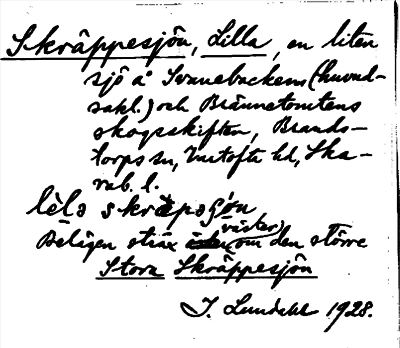 Skräppesjön, Lilla, en liten
sjö å Svanebackens (huvud-
sakl.) och Brännetomtens
skogsskiften, Brands-
torps sn, Vartofta hd, Ska-
rab. l.
lèls skræpsjön
Belägen strax väster om den större
Stora Skräppesjön
J. Lundahl 1928.